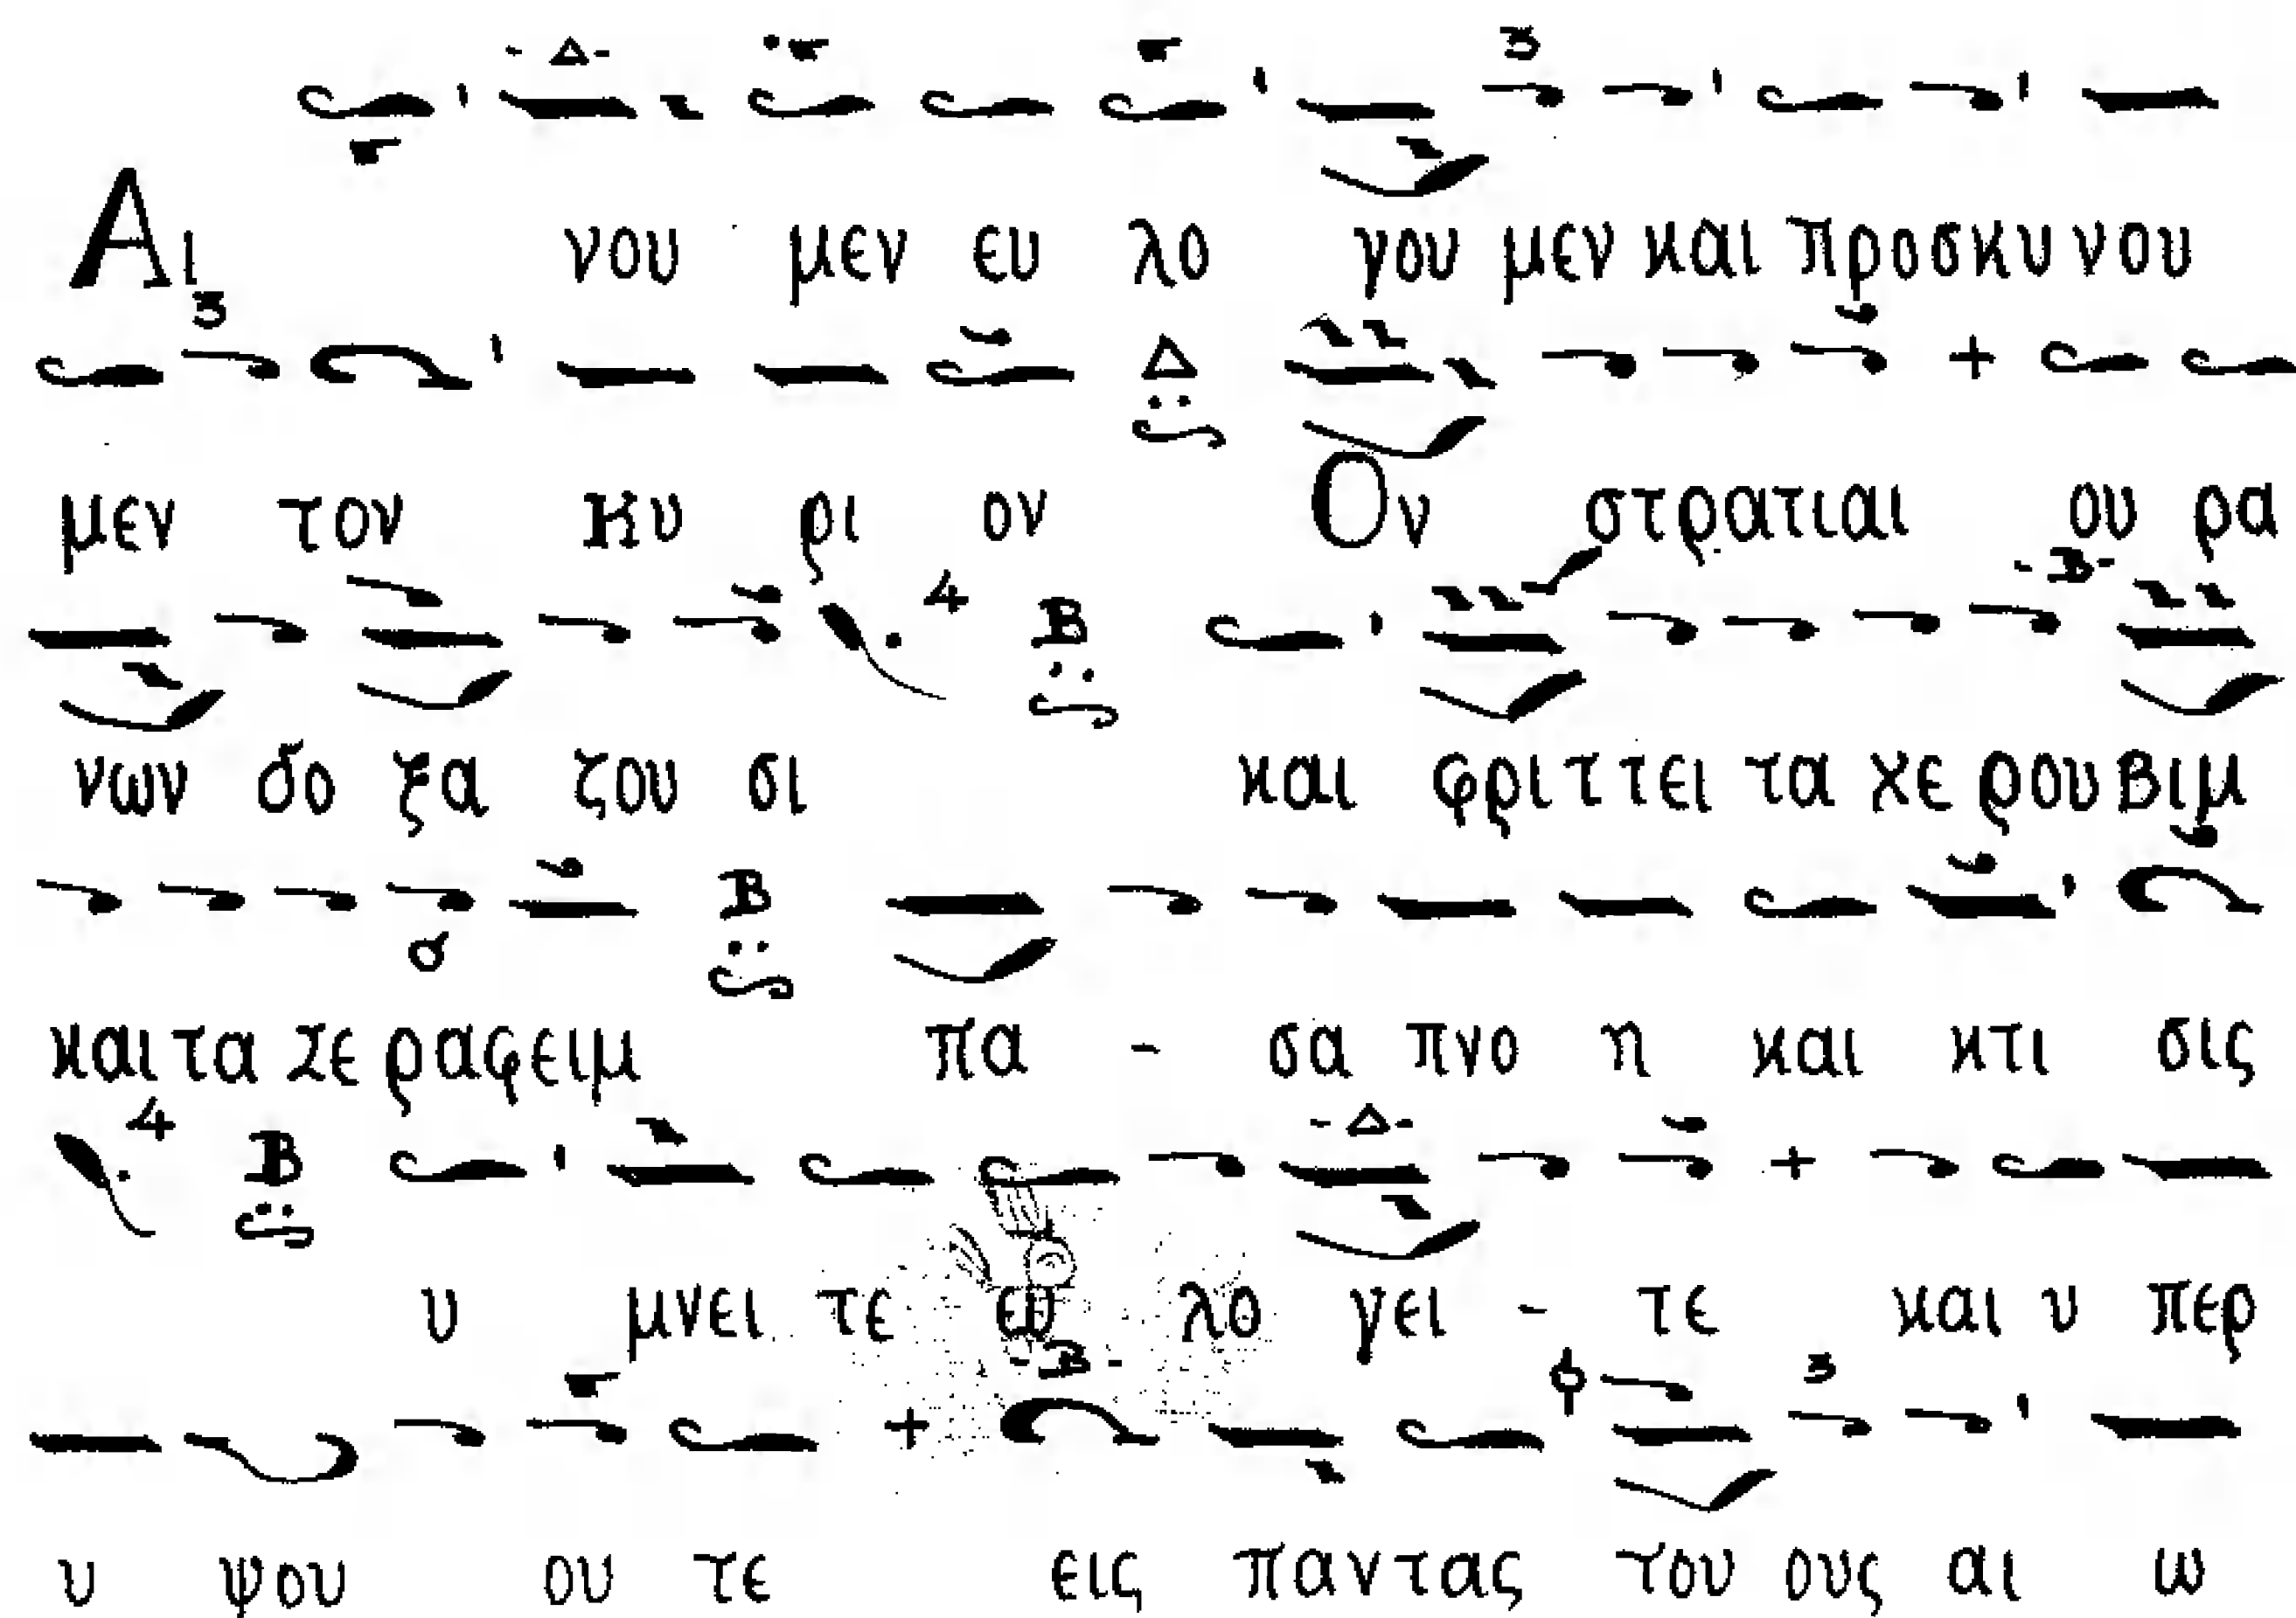 Αι νου μεν ευ λο γου μεν και προσκυ νου
μεν τον Κυ ρι ον Ον στρατιαι ου ρα
νων δο ξα ζου σι και φριττει τα χε ρουβιμ
και τα Σε ραφειμ πα - σα πνο η και κτι σις
υ μνει τε ευ λο γει - τε και υ περ
υ ψου ου τε εις παντας του ους αι ω